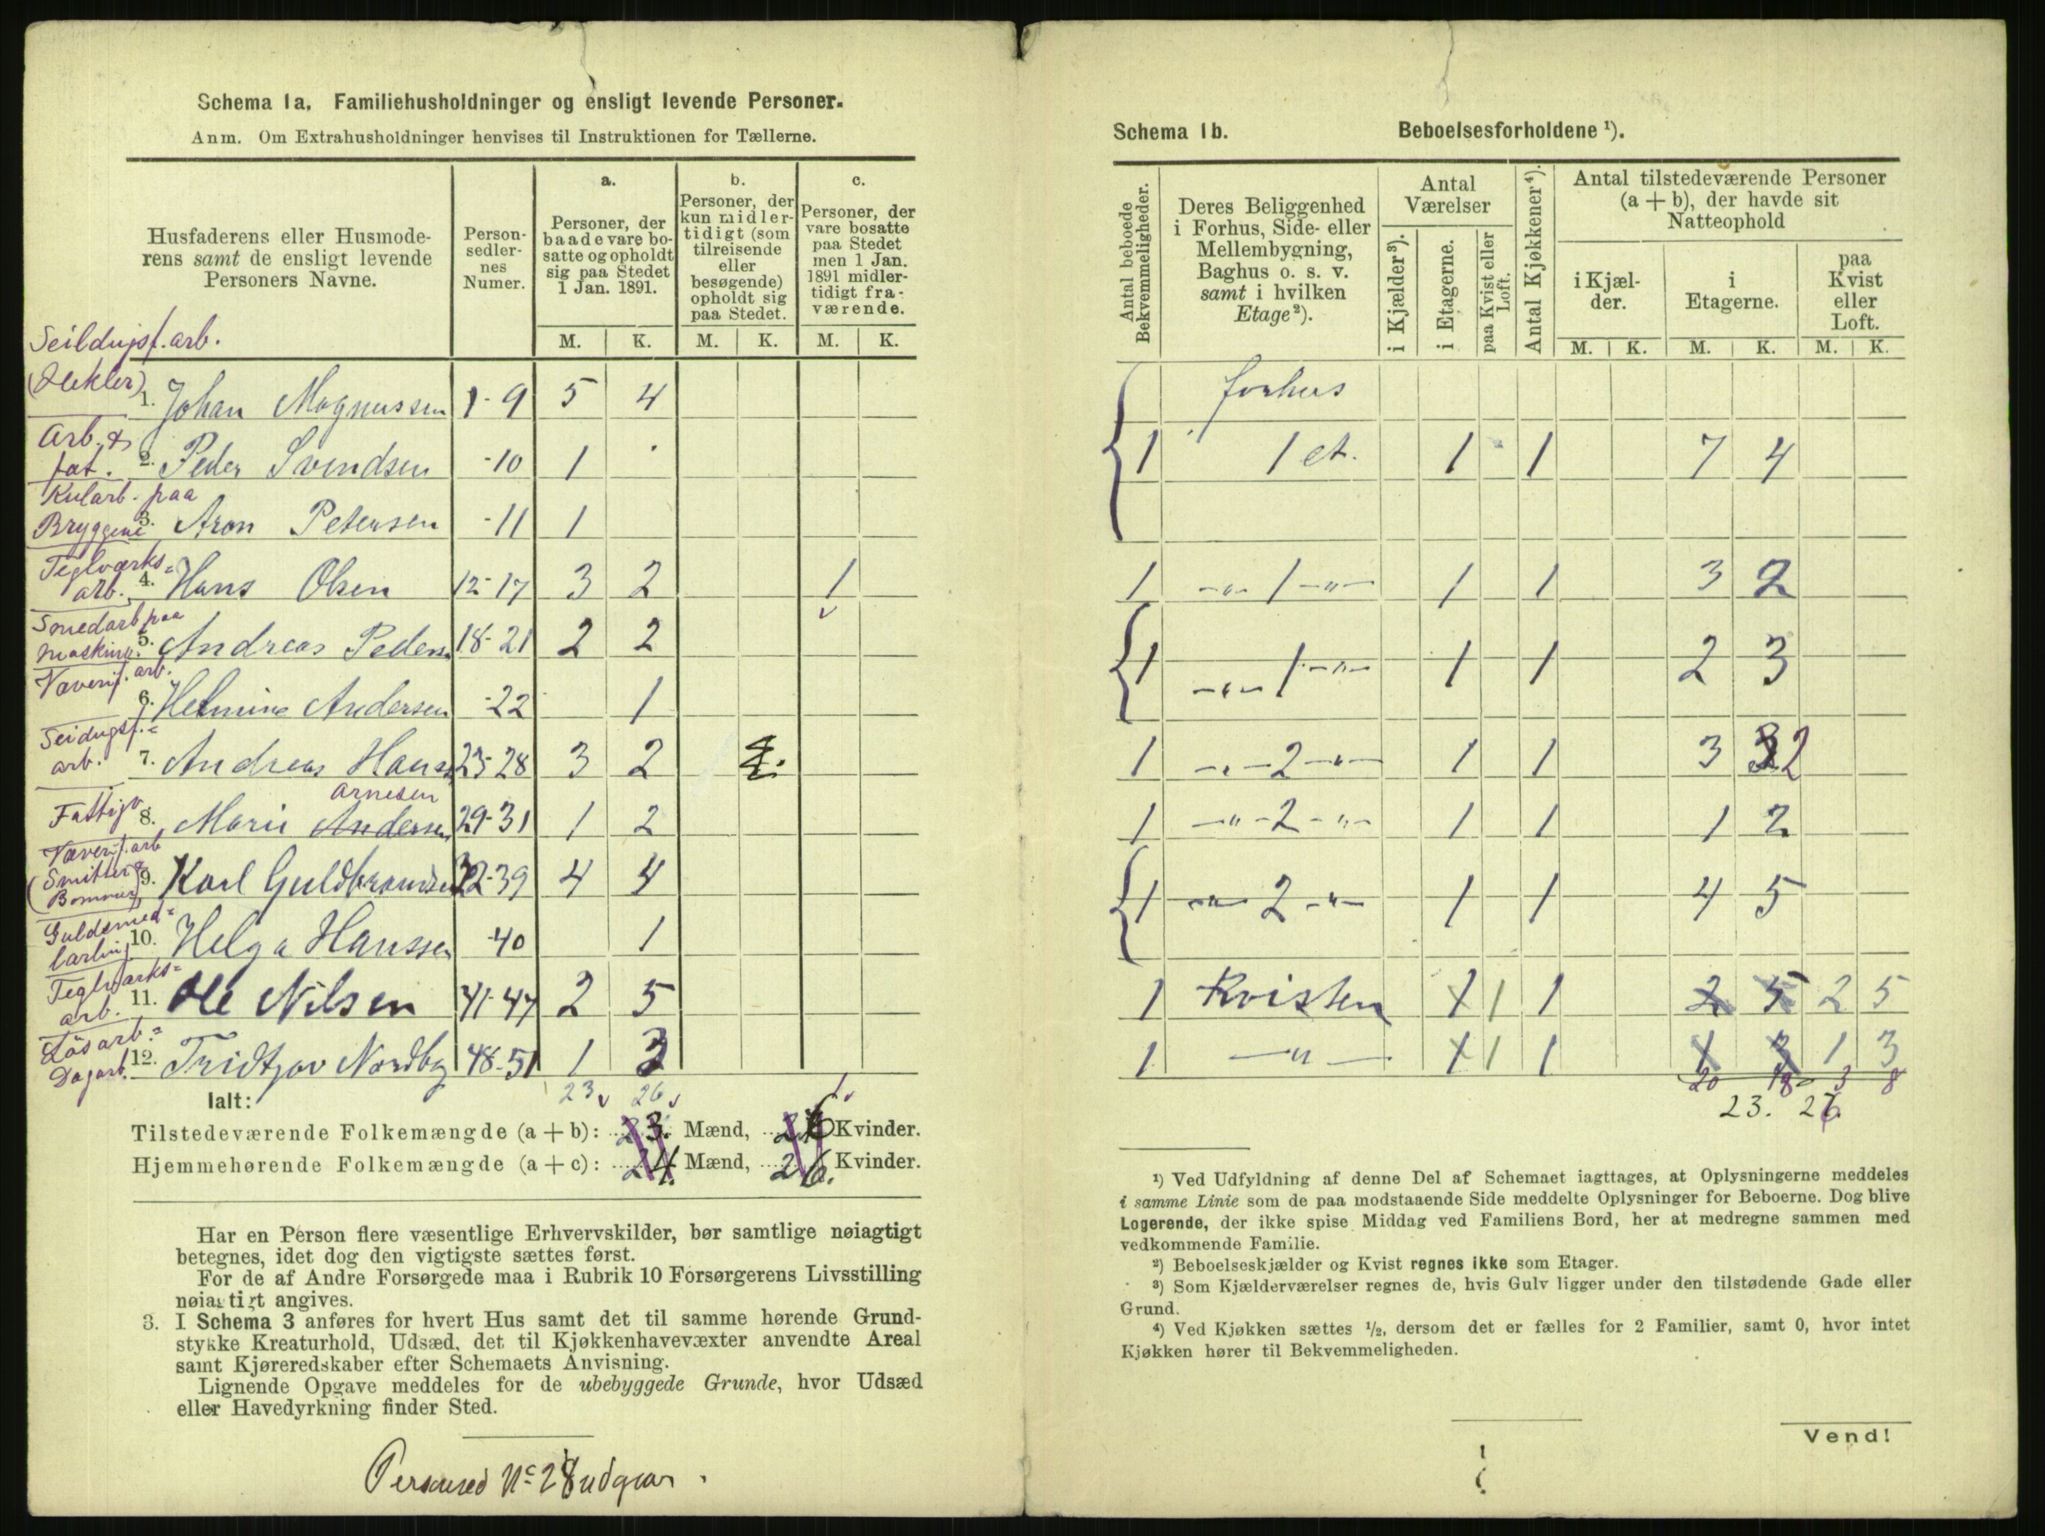 Schema 1a. Familiehusholdninger og ensligt levende Personer.
Anm. Om Extrahusholdninger henvises til Instruktionen for Tællerne.
Husfaderens eller Husmoderens samt de ensligt levende Personers Navne.
Personsedlernes Numer.
a. Personer, der baade vare bosatte og opholdt sig paa Stedet 1 Jan. 1891.
b. Personer, der kun midlertidigt (som tilreisende eller besøgende) opholdt sig paa Stedet.
c. Personer, der vare bosatte paa Stedet men 1 Jan. 1891 midlertidigt fraværende.
M. K. M. K. M. K.
Seildugsf. arb.
(Hekler) 1. Johan Magnussen 1-9 5 4
Arb. &
fat. 2. Peder Svendsen -10 1 .
Kularb. paa
Bryggene 3. Aron Petersen -11 1
Teglværks=
arb. 4. Hans Olsen 12-17 3 2 1
Smedarb paa
Maskinv. 5. Andreas Peders 18-21 2 2
Væverif. arb.
6. Helmine Andersen -22 1
Seidugsf.=
arb. 7. Andreas Hans 23-28 3 2
Arnesen
Fattigv. 8. Marie Andersen 29-31 1 2
Væverif. arb
9. Karl Guldbrandsen 32-39 4 4
Guldsmed=
lærling 10. Helga Hanssen -40 1
Teglværks=
arb. 11. Ole Nilsen 41-47 2 5
Løsarb.=
Dagarb. 12. Fridtjov Nordby 48-51 1 3
23 26 1
Ialt:
Tilstedeværende Folkemængde (a + b): 23. Mænd, 26 Kvinder.
Hjemmehørende Folkemængde (a + c): 24. Mænd, 26. Kvinder.
Har en Person flere væsentlige Erhvervskilder, bør samtlige nøiagtigt
betegnes, idet dog den vigtigste sættes først.
For de af Andre Forsørgede maa i Rubrik 10 Forsørgerens Livsstilling
nøiagtigt angives.
3. I Schema 3 anføres for hvert Hus samt det til samme hørende Grund-
stykke Kreaturhold, Udsæd, det til Kjøkkenhavevæxter anvendte Areal
samt Kjøreredskaber efter Schemaets Anvisning.
Lignende Opgave meddeles for de ubebyggede Grunde, hvor Udsæd
eller Havedyrkning finder Sted.
Personsed No 28 udgaar.
Schema 1b. Beboelsesforholdene ¹).
Antal beboede Bekvemmeligheder.
Deres Beliggenhed i Forhus, Side- eller Mellembygning, Baghus o. s. v. samt i hvilken Etage²).
Antal Værelser
i Kjælder³). i Etagerne. paa Kvist eller Loft.
Antal Kjøkkener⁴).
Antal tilstedeværende Personer (a + b), der havde sit Natteophold
i Kjælder. i Etagerne. paa Kvist eller Loft.
M. K. M. K. M. K.
forhus
1 1 et. 1 1 7 4
1 -"- 1 -"- 1 1 3 2
1 -"- 1 -"- 1 1 2 3
1 -"- 2 -"- 1 1 3 3 2
1 -"- 2 -"- 1 1 1 2
1 -"- 2 -"- 1 1 4 5
1 Kvisten 1 1 1 2 5 2 5
1 -"- 1 1 1 1 3 1 3
20 18 3 8
23. 26.
¹) Ved Udfyldning af denne Del af Schemaet iagttages, at Oplysningerne meddeles
i samme Linie som de paa modstaaende Side meddelte Oplysninger for Beboerne. Dog blive
Logerende, der ikke spise Middag ved Familiens Bord, her at medregne sammen med
vedkommende Familie.
²) Beboelseskjælder og Kvist regnes ikke som Etager.
³) Som Kjælderværelser regnes de, hvis Gulv ligger under den tilstødende Gade eller
Grund.
⁴) Ved Kjøkken sættes ½, dersom det er fælles for 2 Familier, samt 0, hvor intet
Kjøkken hører til Bekvemmeligheden.
Vend!